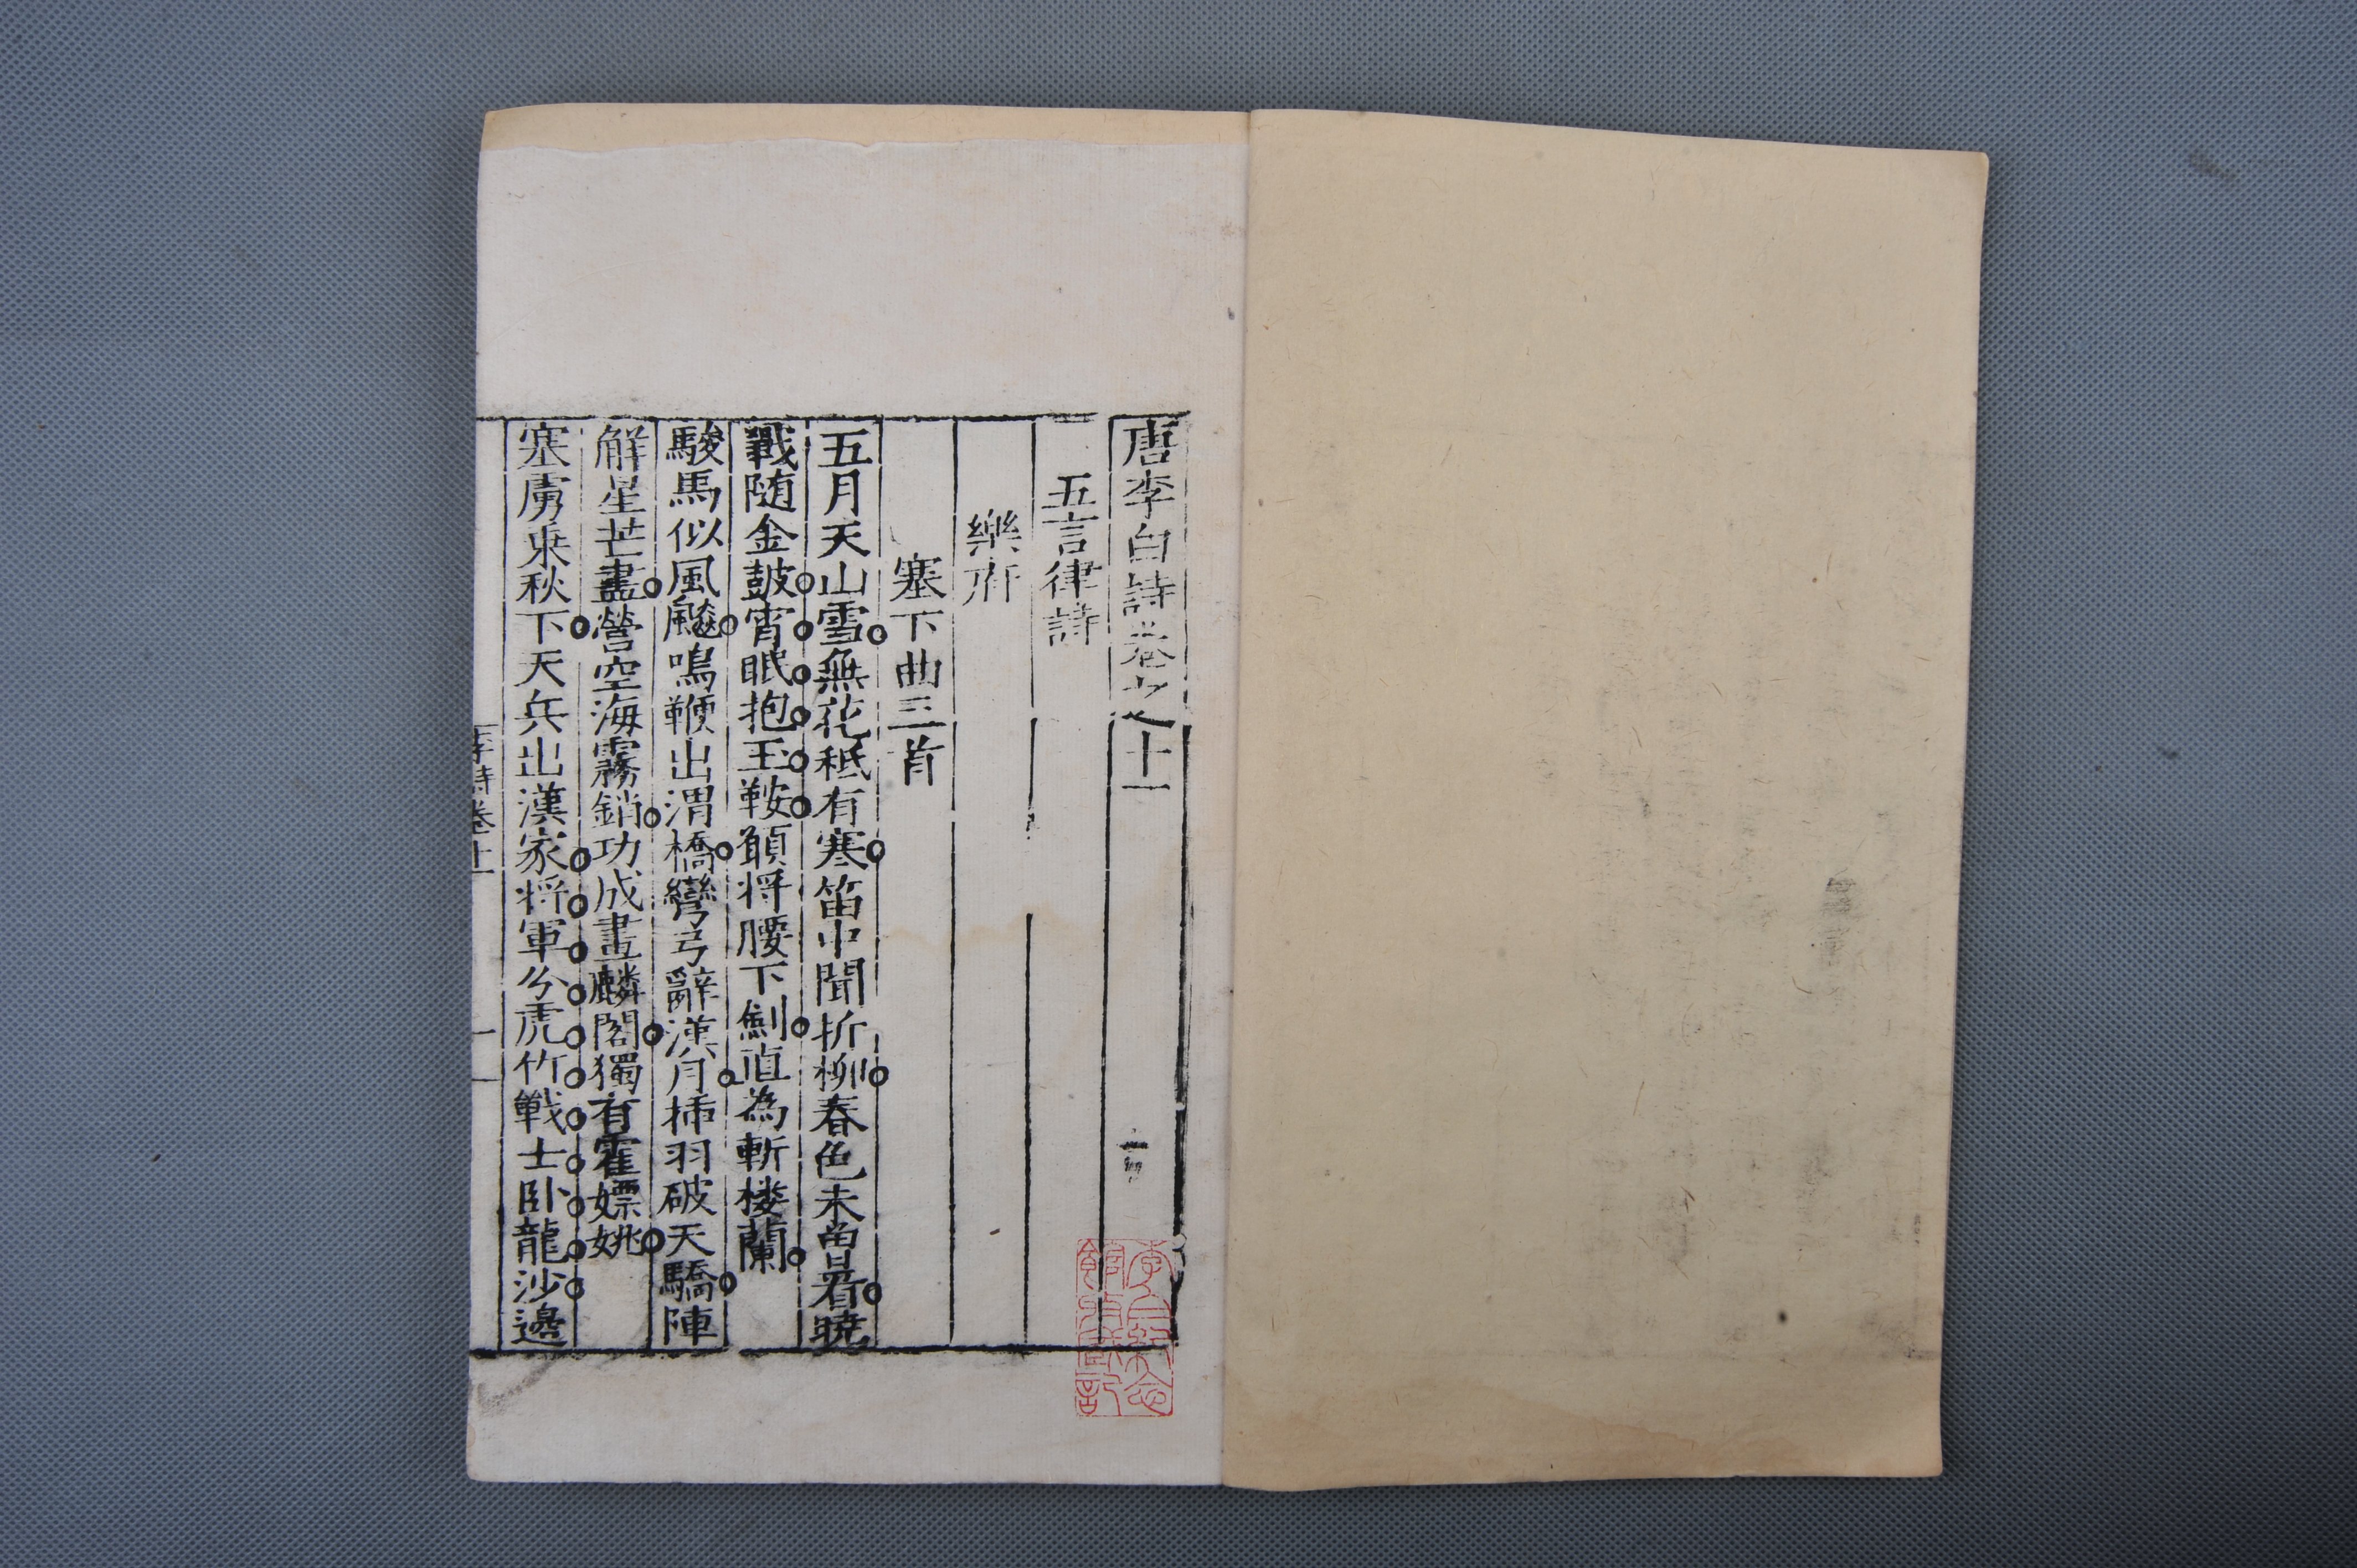 唐李白詩卷之十一
五言律詩
樂府
塞下曲三首
五月天山雪無花秪有寒笛中聞折柳春色未曾看曉
戰随金鼓宵眠抱玉鞍願将腰下劍直為斬樓蘭
駿馬似風飈鳴鞭出渭橋彎弓辭漢月揷羽破天驕陣
解星芒盡營空海霧銷功成畫麟閣獨有霍嫖姚
塞虜乘秋下天兵出漢家将軍分虎竹戰士卧龍沙邊
李詩卷十一
一
李白紀念館所藏記